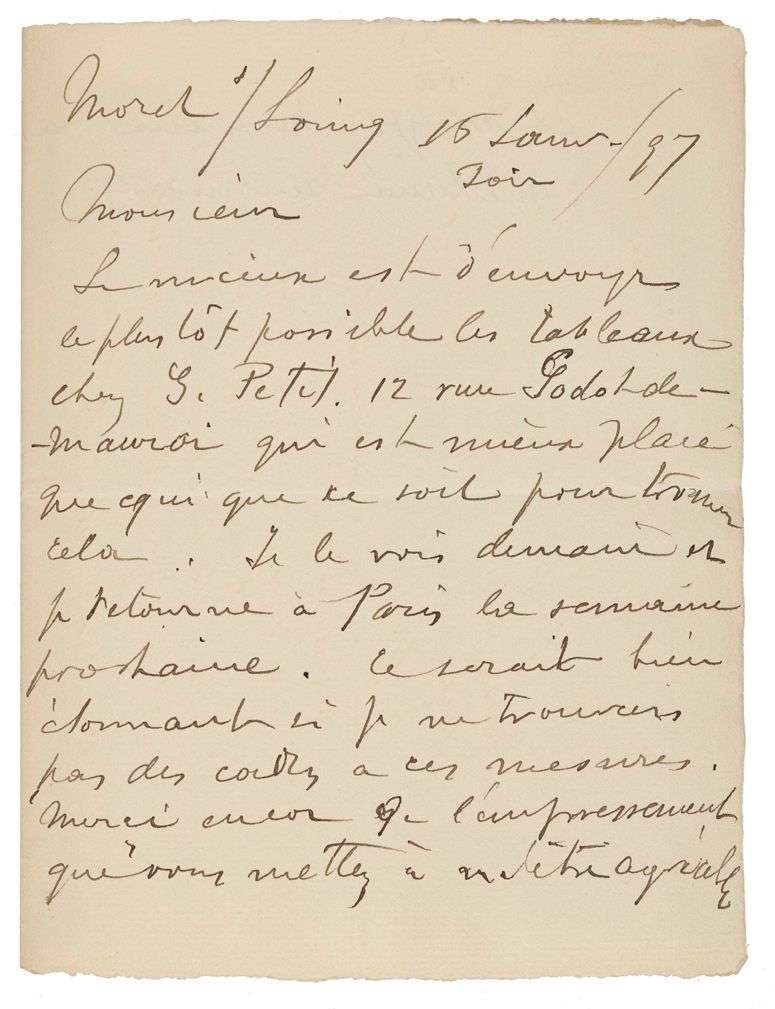 Moret s/Loing 16 Janv-/97
Soir
Monsieur
Le mieux est d'envoyer
le plus tôt possible les tableaux
chez G. Petit. 12 rue Godot-de-
-mauroi qui est mieux placé
que qui que ce soit pour trouver
cela. Je le vois demain et
je retourne à Paris la semaine
prochaine. Ce serait bien
étonnant si je ne trouvais
pas des cadres a ces mesures.
Merci encore de l'empressement
que vous mettez à m'être agréable